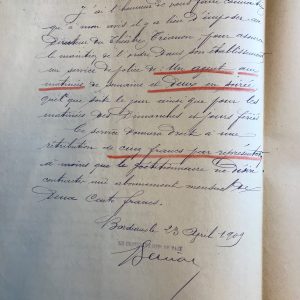 J'ai l'honneur de vous faire connaître
qu'à mon avis il y a lieu d'imposer au
Directeur du Théâtre Trianon pour assurer
le maintien de l'ordre dans son établissement
un service de police de : Un agent aux
matinées de semaine et deux en soirée
quel que soit le jour ainsi que pour les
matinées des Dimanches et jours fériés
Ce service donnera droit à une
rétribution de cinq francs par représentation
à moins que le pétitionnaire ne désire
contracter un abonnement mensuel de
Deux Cents francs.
Bordeaux le 23 April 1909